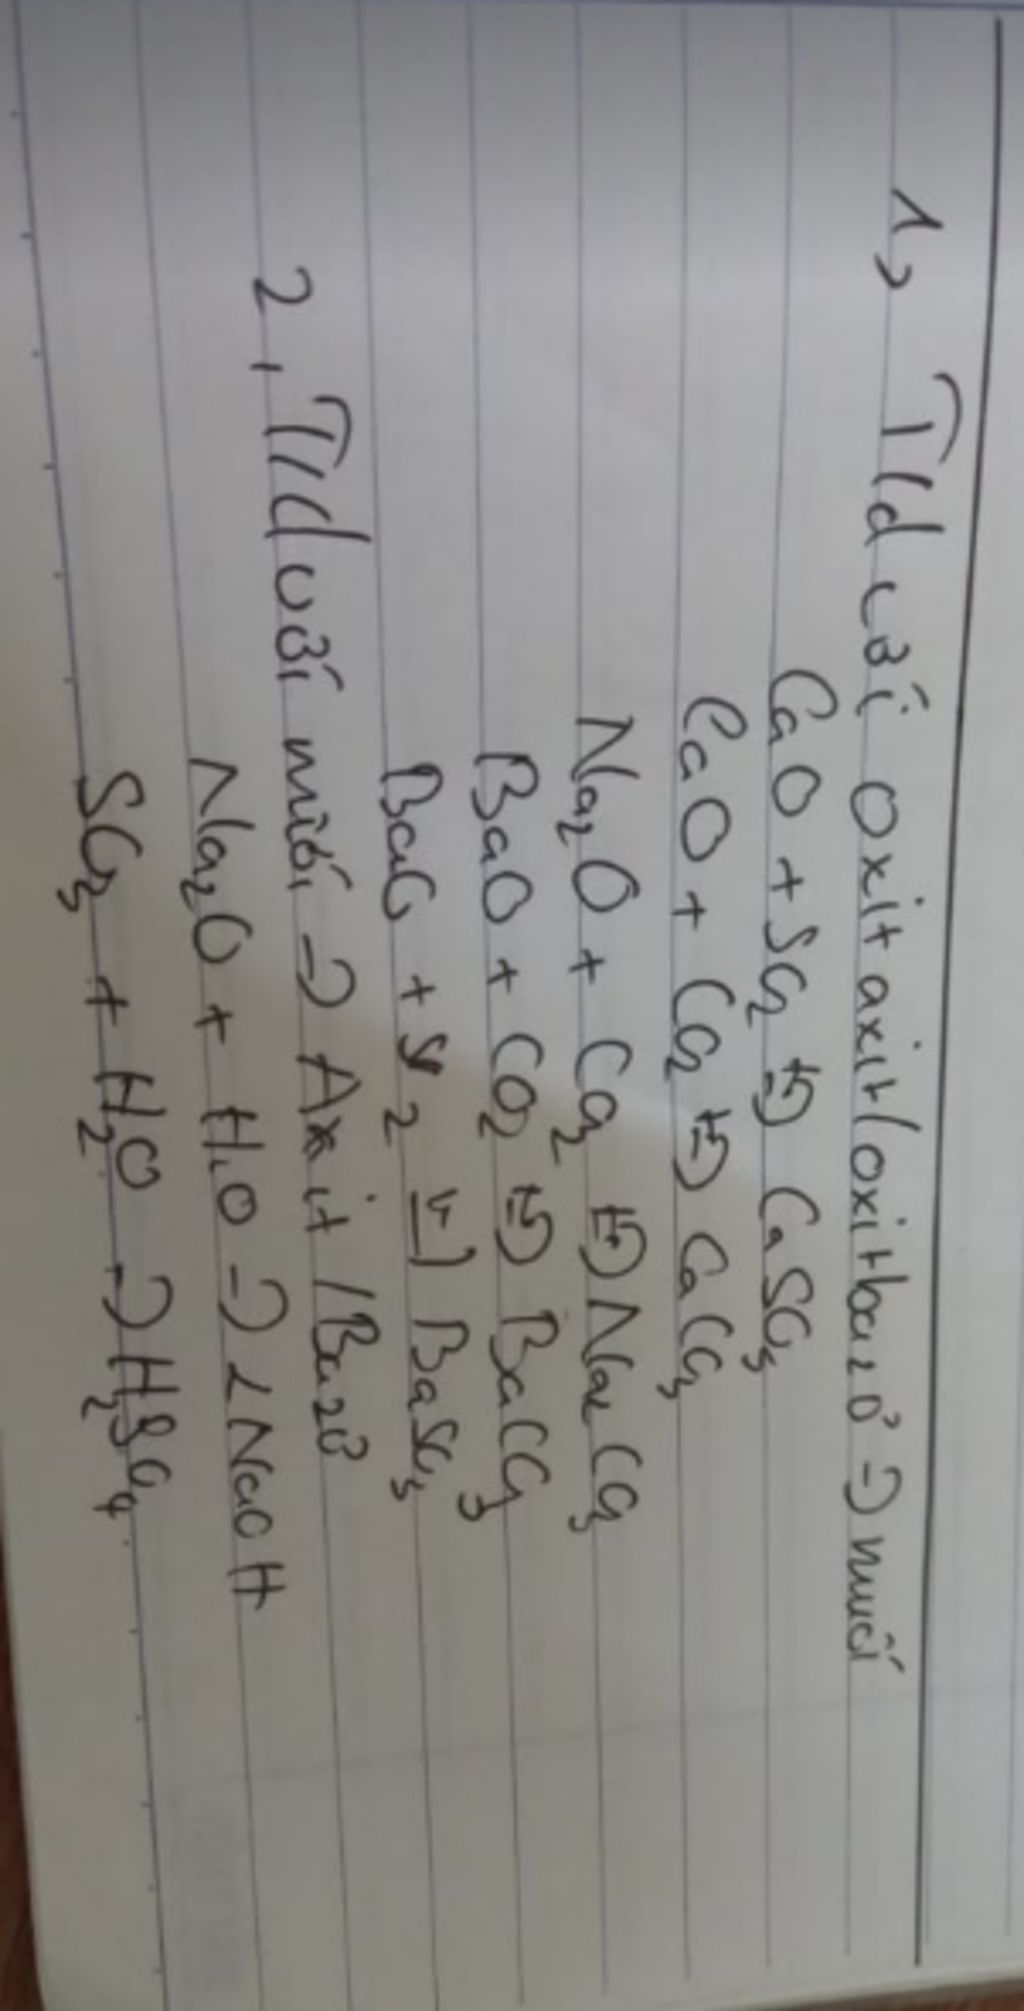 1, T/d với oxit axit/oxit bazơ => muối
CaO + SO2 t°=> CaSO3
CaO + CO2 t°=> CaCO3
Na2O + CO2 t°=> Na2CO3
BaO + CO2 t°=> BaCO3
BaO + SO2 t°=> BaSO3
2, T/d với nước => Axit / Bazơ
Na2O + H2O => 2NaOH
SO3 + H2O => H2SO4.